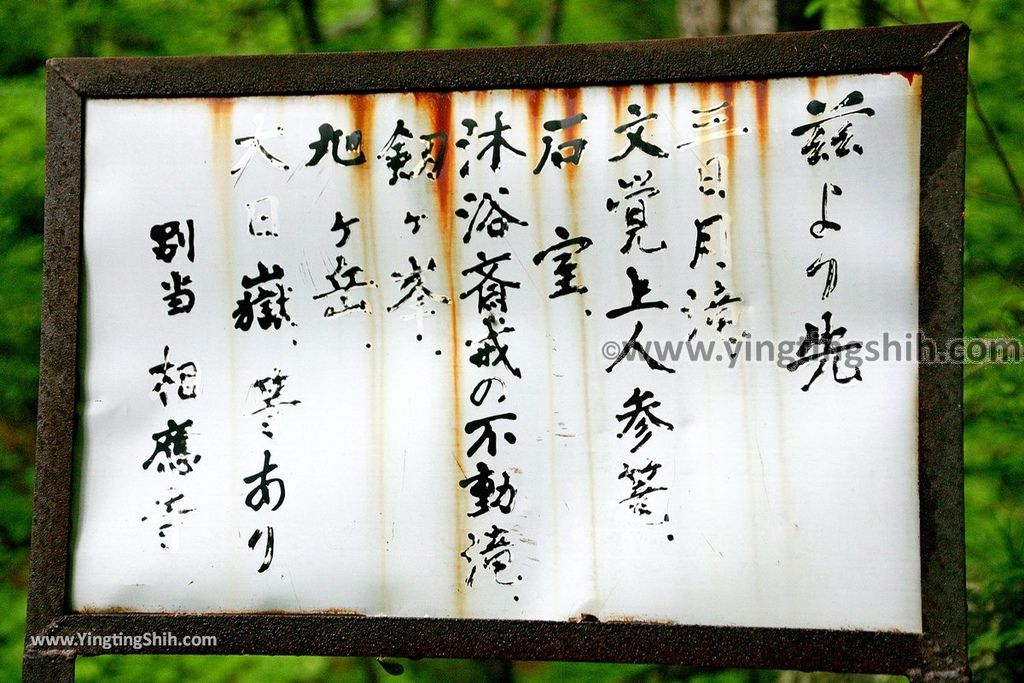 茲より先
三日月滝
文覚上人参篭.
石室.
沐浴斎戒の不動滝.
剱ヶ峯.
旭ヶ岳.
大日嶽.等あり
別当 相應寺
©www.yingtingshih.com
www.YingtingShih.com